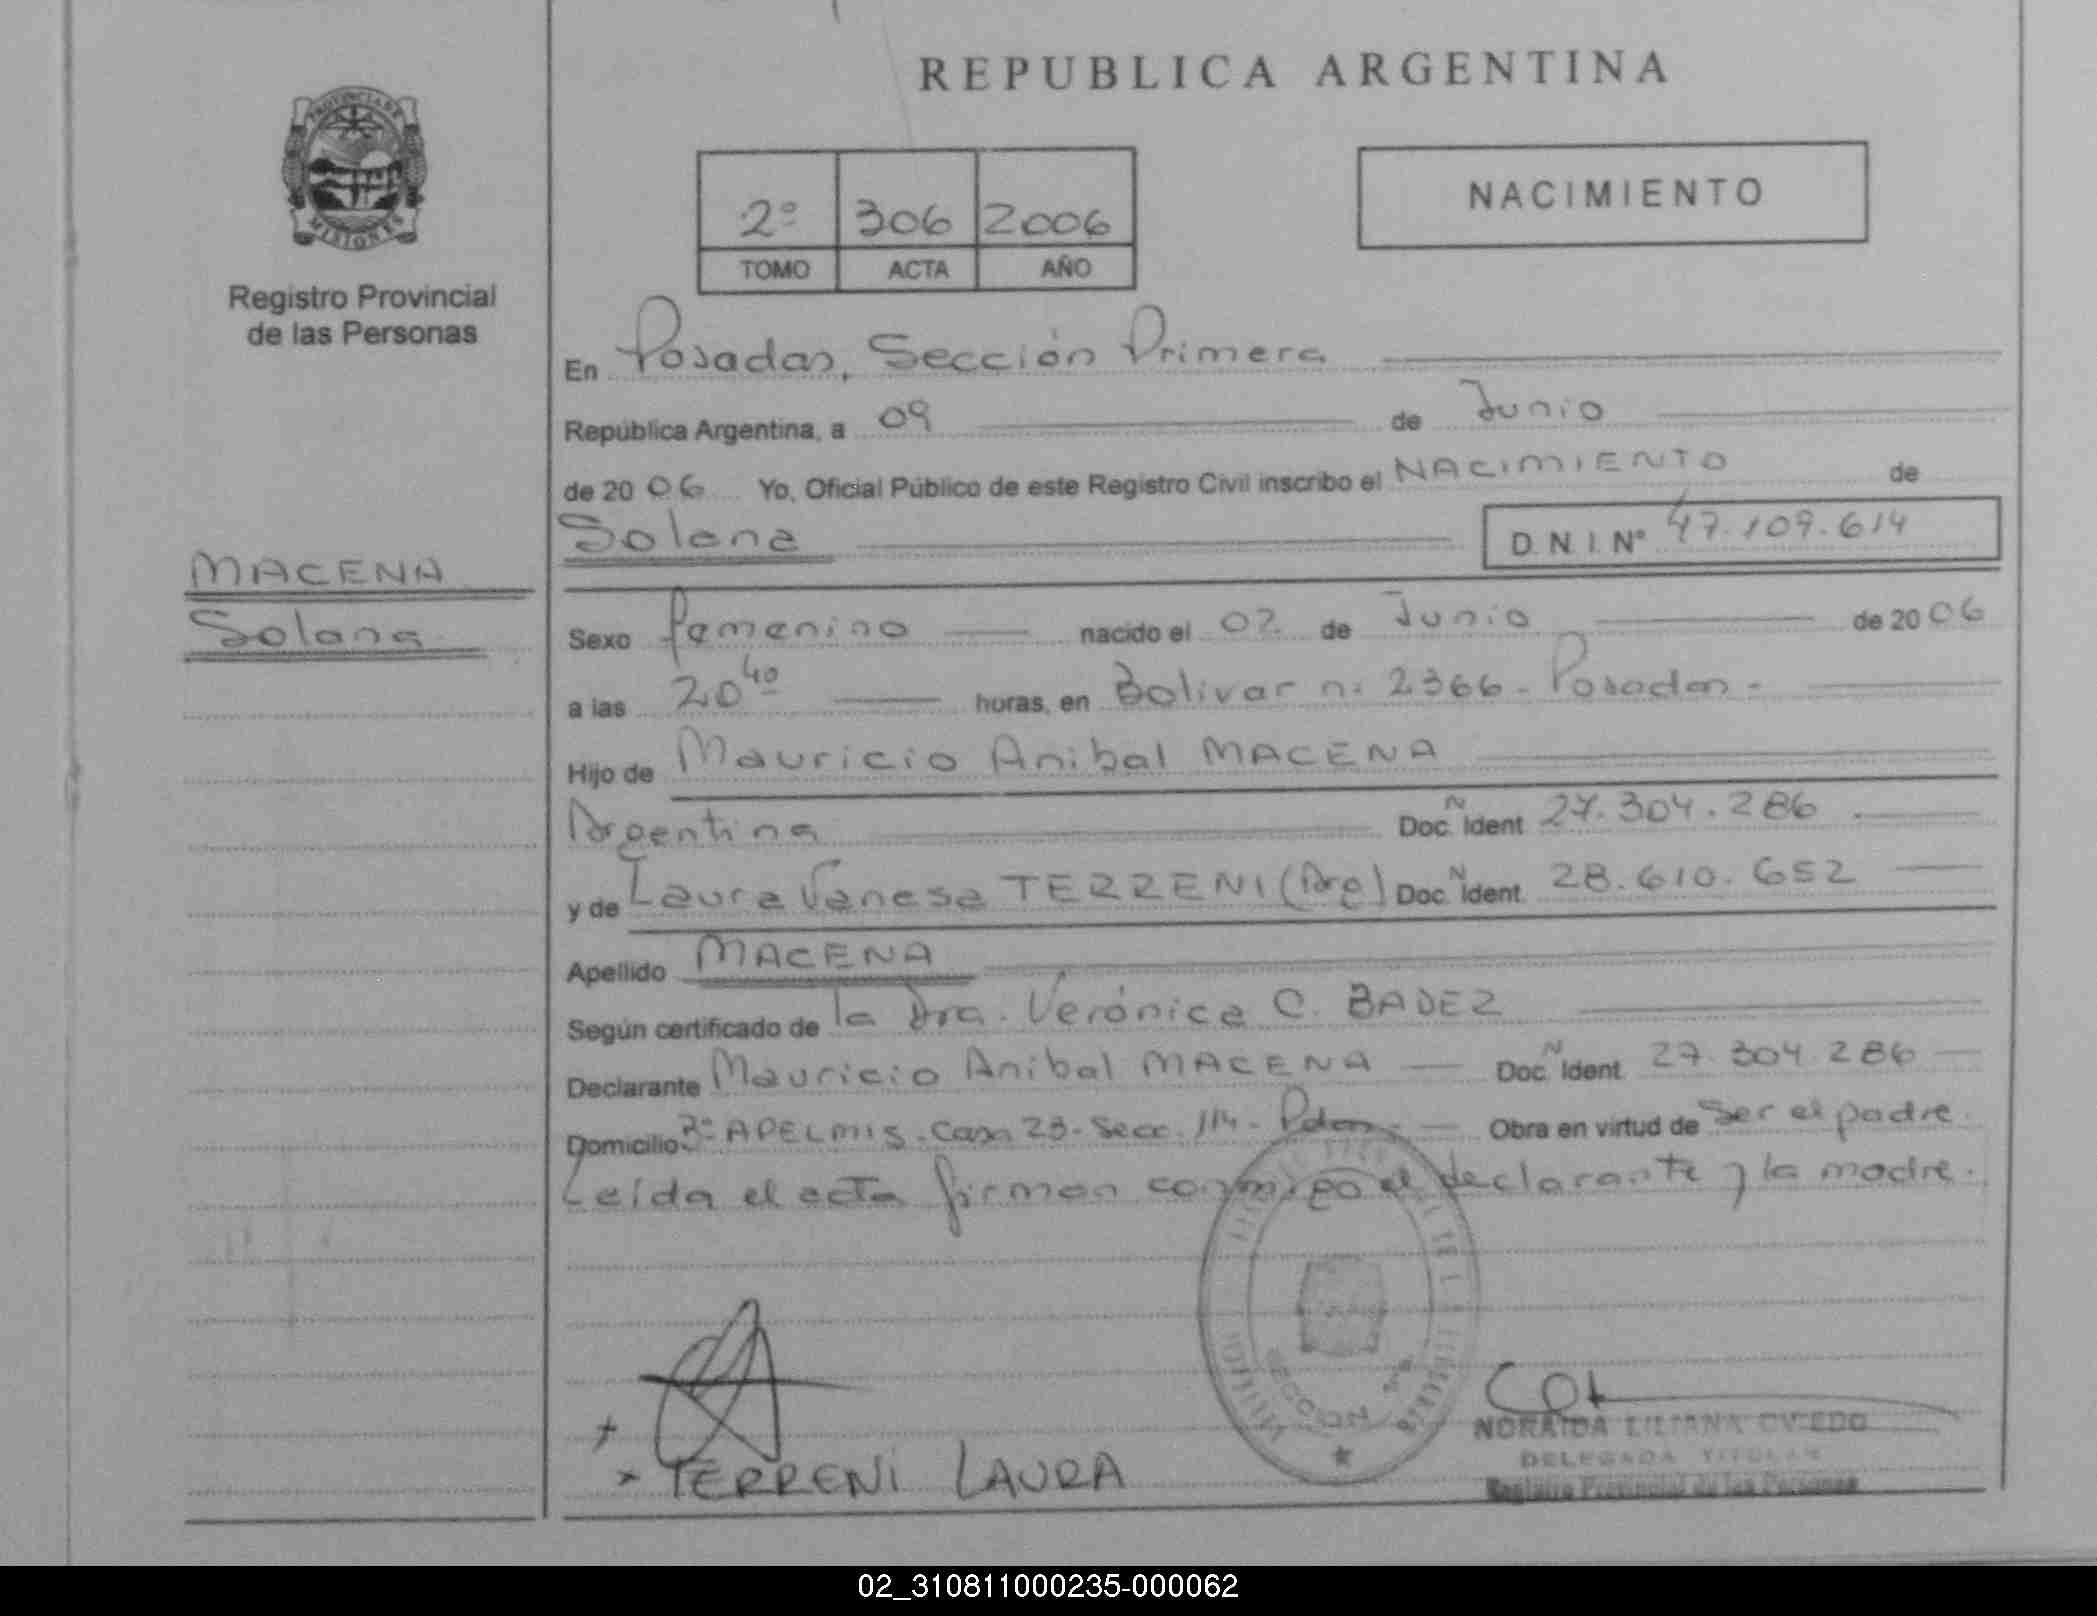 REPUBLICA ARGENTINA
PROVINCIA DE
MISIONES
Registro Provincial
de las Personas
2º 306 2006
TOMO ACTA AÑO
NACIMIENTO
En Posadas, Sección Primera
República Argentina, a 09 de Junio
de 2006 Yo, Oficial Público de este Registro Civil inscribo el NACIMIENTO de
Solana D.N.I.Nº 47.109.614
MACENA
Solana
Sexo femenino nacido el 02 de Junio de 2006
a las 20 40 horas, en Bolivar n: 2366 - Posadas -
Hijo de Mauricio Anibal MACENA
Argentina Doc. N Ident 27.304.286
y de Laura Vanesa TERRENI (Arg) Doc. N Ident. 28.610.652
Apellido MACENA
Según certificado de la Dra. Verónica C. BADEZ
Declarante Mauricio Anibal MACENA Doc. N Ident. 27.304.286
Domicilio APELMIS - Casa 23 - Secc. Pdas - Obra en virtud de Ser el padre.
Leída el acta firman conmigo el declarante y la madre.
TERRENI LAURA
NORAIDA LILIANA OVIEDO
DELEGADA TITULAR
Registro Provincial de las Personas
02_310811000235-000062